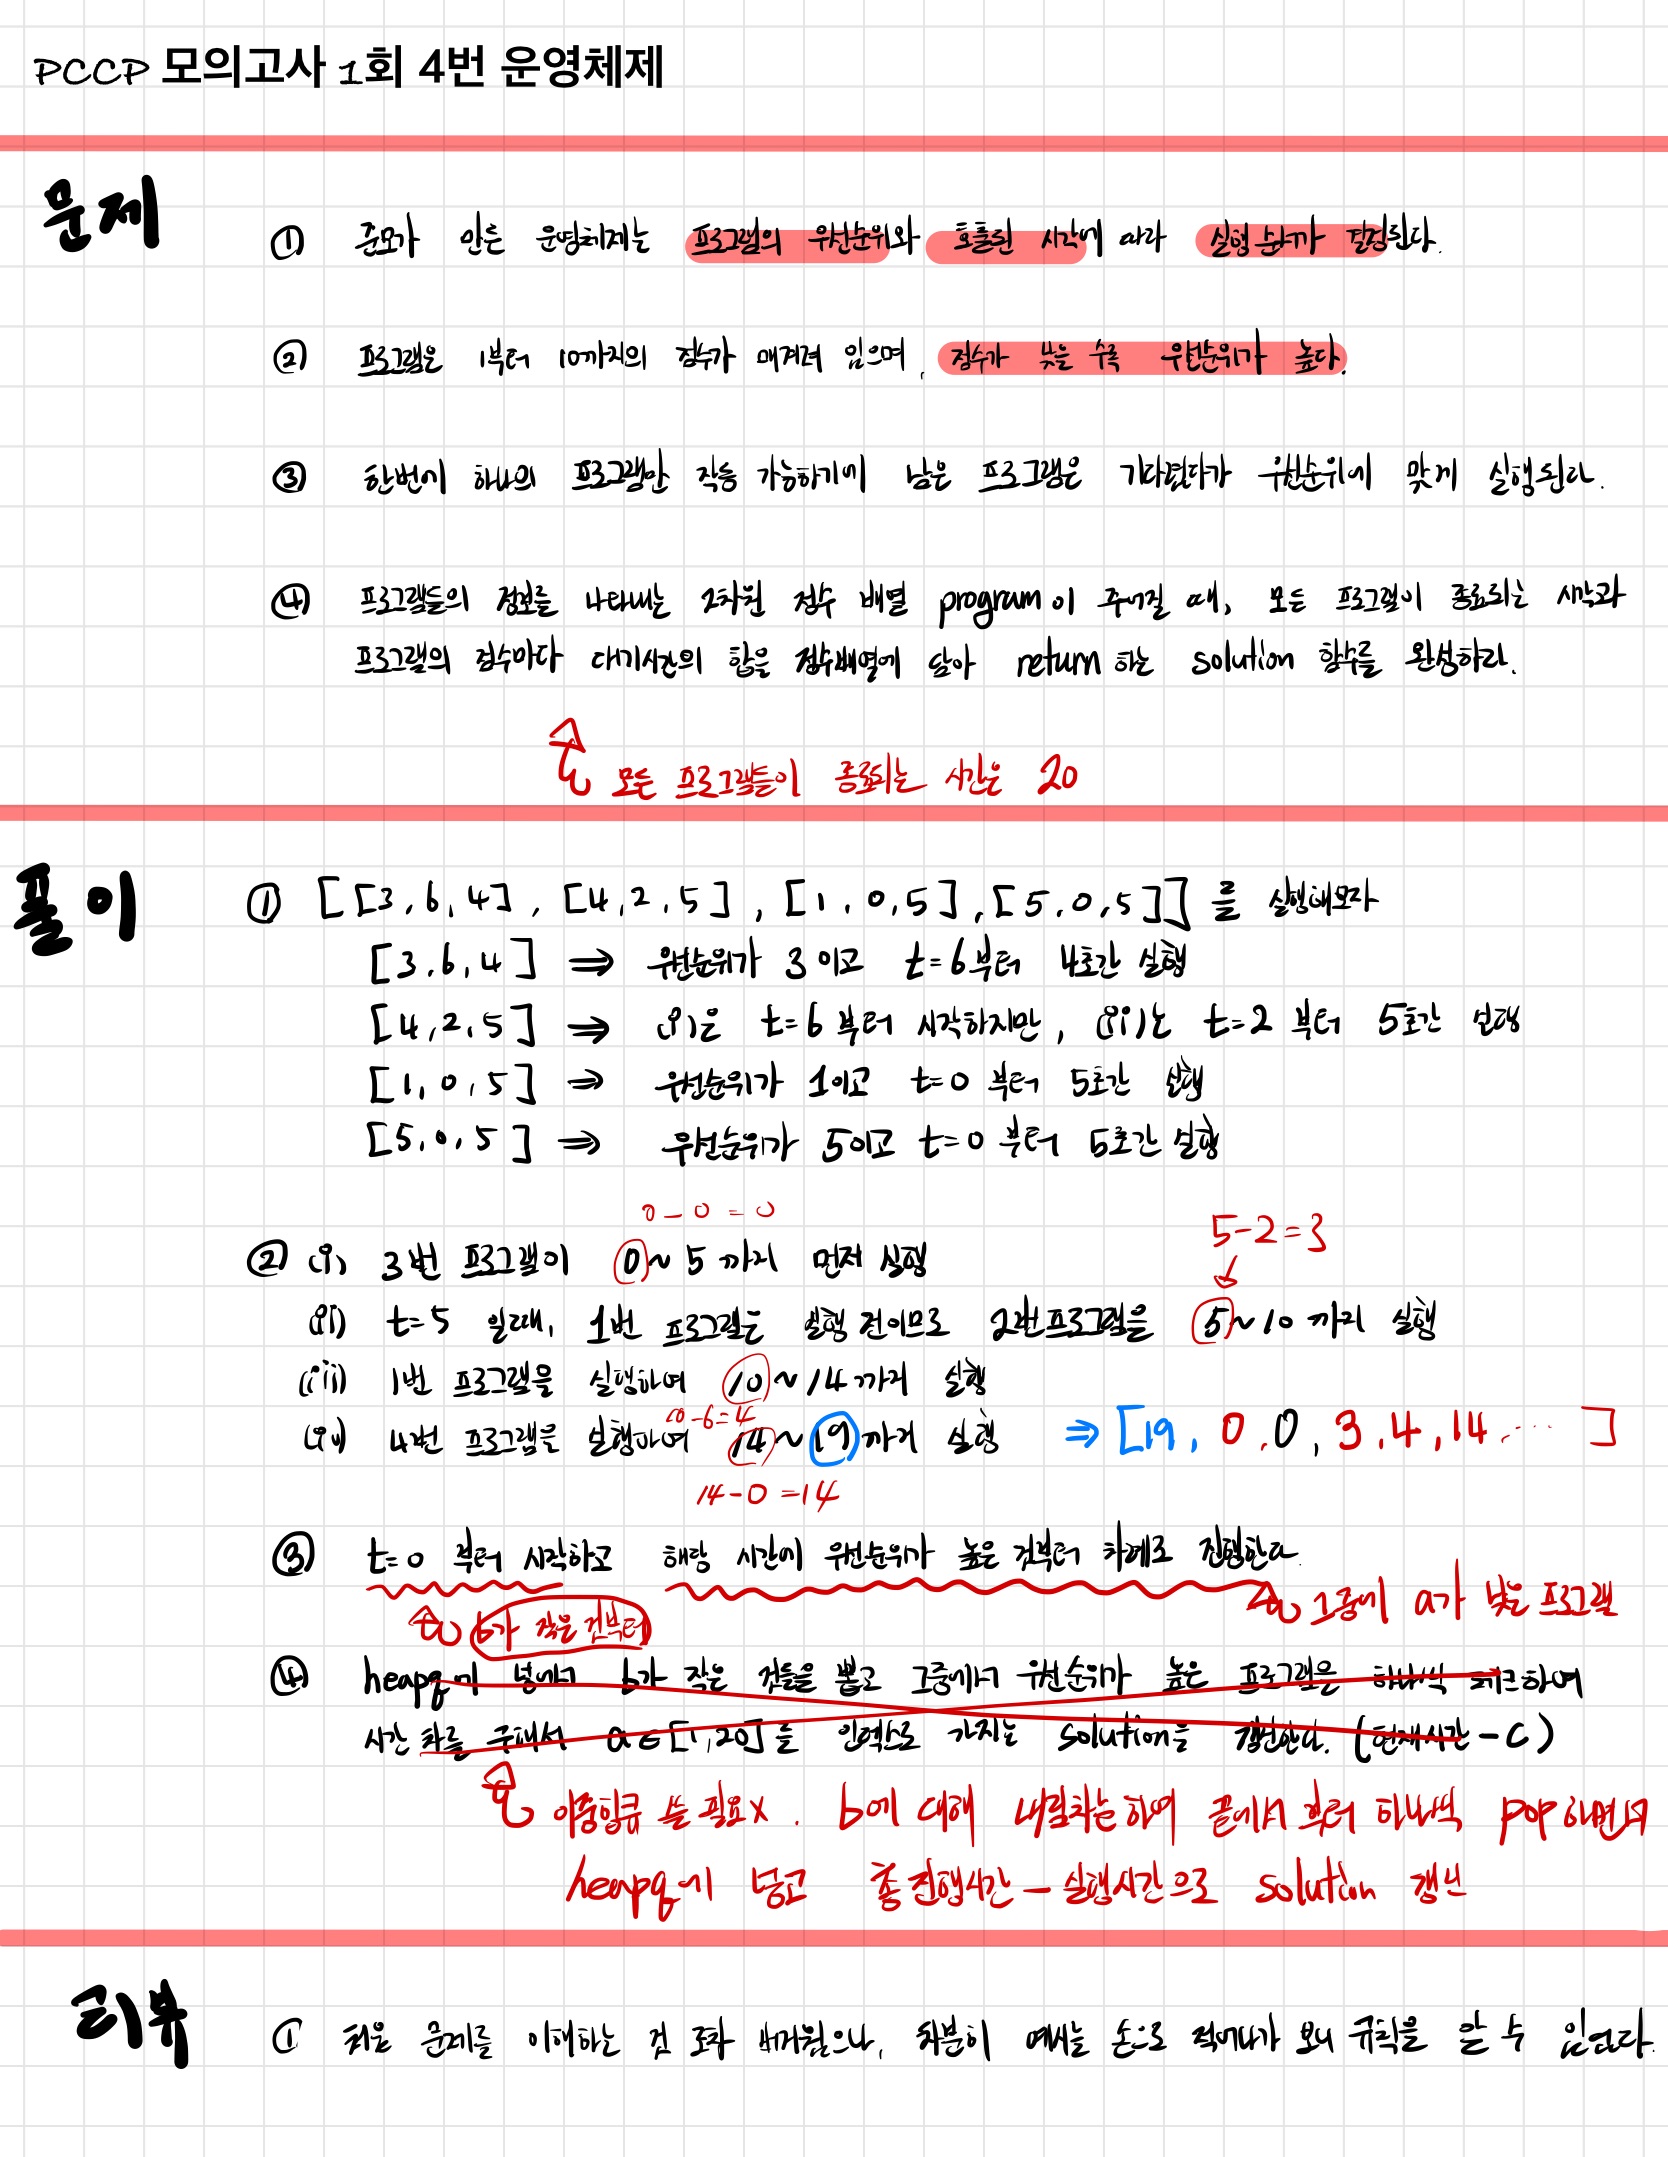 PCCP 모의고사 1회 4번 운영체제
문제
① 준모가 만든 운영체제는 프로그램의 우선순위와 호출된 시각에 따라 실행 순서가 결정된다.
② 프로그램은 1부터 10까지의 점수가 매겨져 있으며, 점수가 낮을 수록 우선순위가 높다.
③ 한번에 하나의 프로그램만 작동 가능하기에 남은 프로그램은 기다렸다가 우선순위에 맞게 실행된다.
④ 프로그램들의 정보를 나타내는 2차원 정수 배열 program이 주어질 때, 모든 프로그램이 종료되는 시각과
프로그램의 점수마다 대기시간의 합을 정수배열에 담아 return 하는 solution 함수를 완성하라.
모든 프로그램들이 종료되는 시간은 20
풀이
① [[3,6,4], [4,2,5], [1,0,5], [5,0,5]]를 실행해보자
[3,6,4] ⇒ 우선순위가 3이고 t=6부터 4초간 실행
[4,2,5] ⇒ (i)은 t=6부터 시작하지만, (ii)는 t=2 부터 5초간 실행
[1,0,5] ⇒ 우선순위가 1이고 t=0 부터 5초간 실행
[5,0,5] ⇒ 우선순위가 5이고 t=0 부터 5초간 실행
0-0=0
5-2=3
② (i) 3번 프로그램이 0~5까지 먼저 실행
(ii) t=5 일때, 1번 프로그램은 실행 전이므로 2번프로그램을 5~10까지 실행
(iii) 1번 프로그램을 실행하여 10~14까지 실행
10-6=4
(iv) 4번 프로그램을 실행하여 14~19까지 실행 ⇒ [19, 0, 0, 3, 4, 14 ... ]
14-0=14
③ t=0 부터 시작하고 해당 시간에 우선순위가 높은 것부터 차례로 진행한다.
그중에 a가 낮은 프로그램
b가 작은 것부터
④ heapq에 넣어서 b가 작은 것들을 뽑고 그중에서 우선순위가 높은 프로그램을 하나씩 체크하여
시간 차를 구해서 a∈[1,20]를 인덱스로 가지는 solution을 갱신한다. (현재시간-c)
이중힙큐 쓸 필요x. b에 대해 내림차순하여 끝에서 부터 하나씩 pop하면서
heapq에 넣고 총 진행시간 - 실행시간으로 solution 갱신
리뷰
① 처음 문제를 이해하는 것 조차 버거웠으나, 차분히 예시를 손으로 적어나가 보니 규칙을 알 수 있었다.